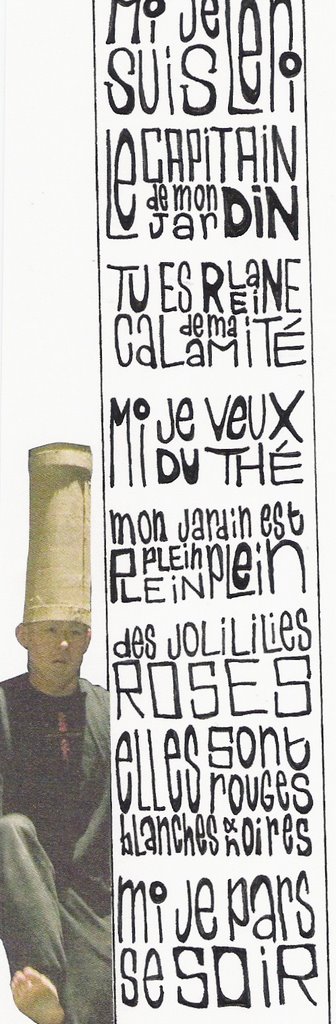 Mi JE
SUiS LENi
LE CAPiTAiN
de mon
JarDiN
TU ES REiNE
de ma
CaLaMiTÉ
Mi JE VEUX
DU THÉ
mon Jardin est
PLEiN PLEiN PLEiN
des JOLiLiLiES
ROSES
ELLES SONt
rOUGES
bLANCHES & NOiRES
mi JE PArS
SE SOiR